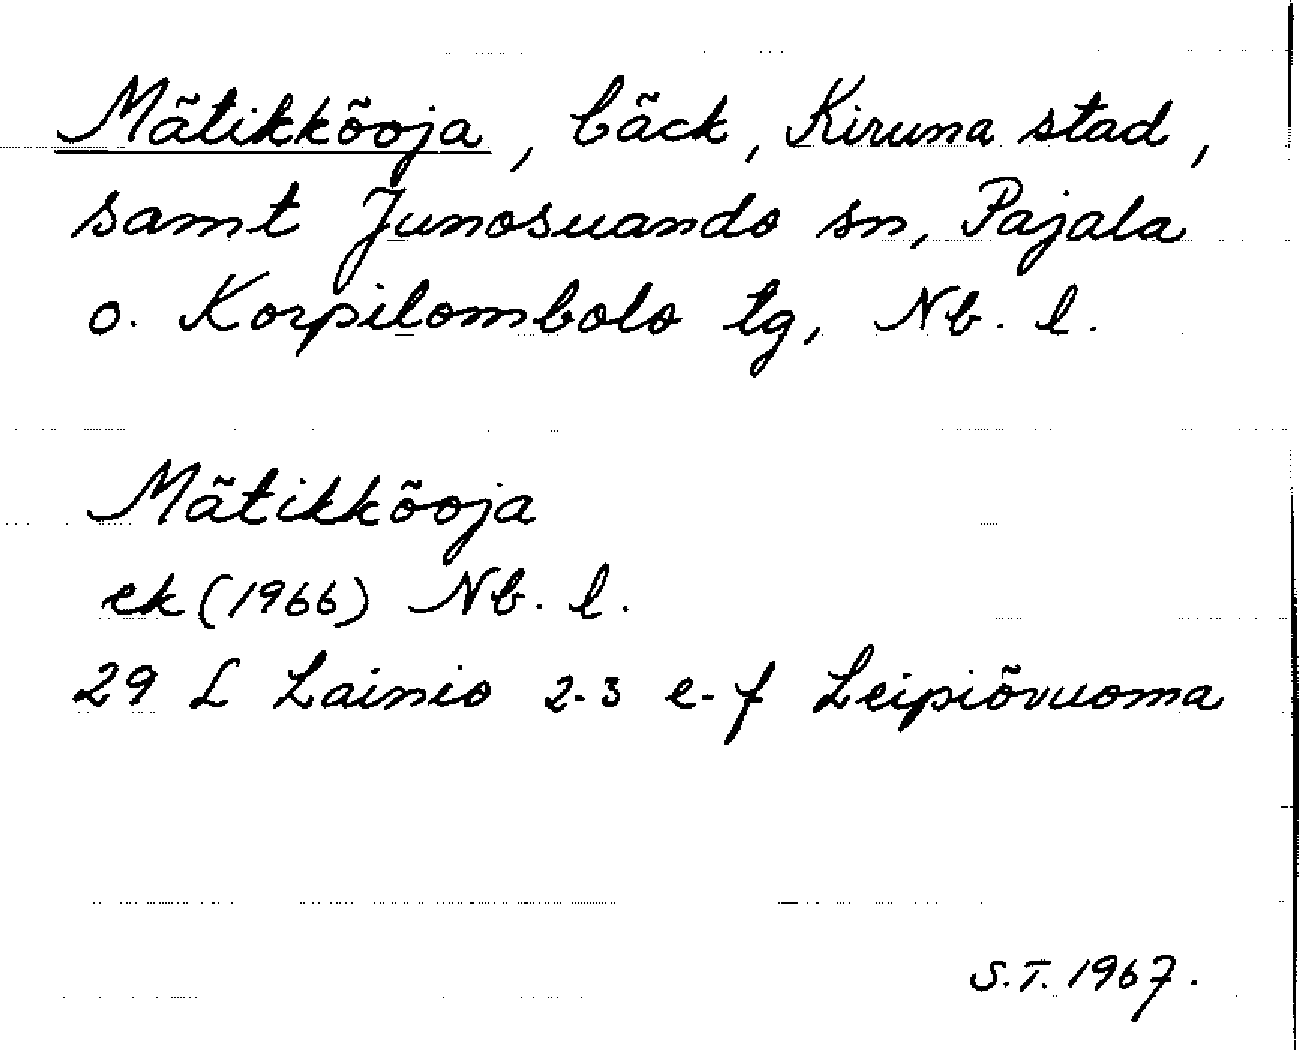 Mätikköoja, bäck, Kiruna stad,
samt Junosuando sn, Pajala
o. Korpilombolo tg, Nb. l.
Mätikköoja
ek (1966) Nb. l.
29 L Lainio 2-3 e-f Leipiövuoma
S.T. 1967.